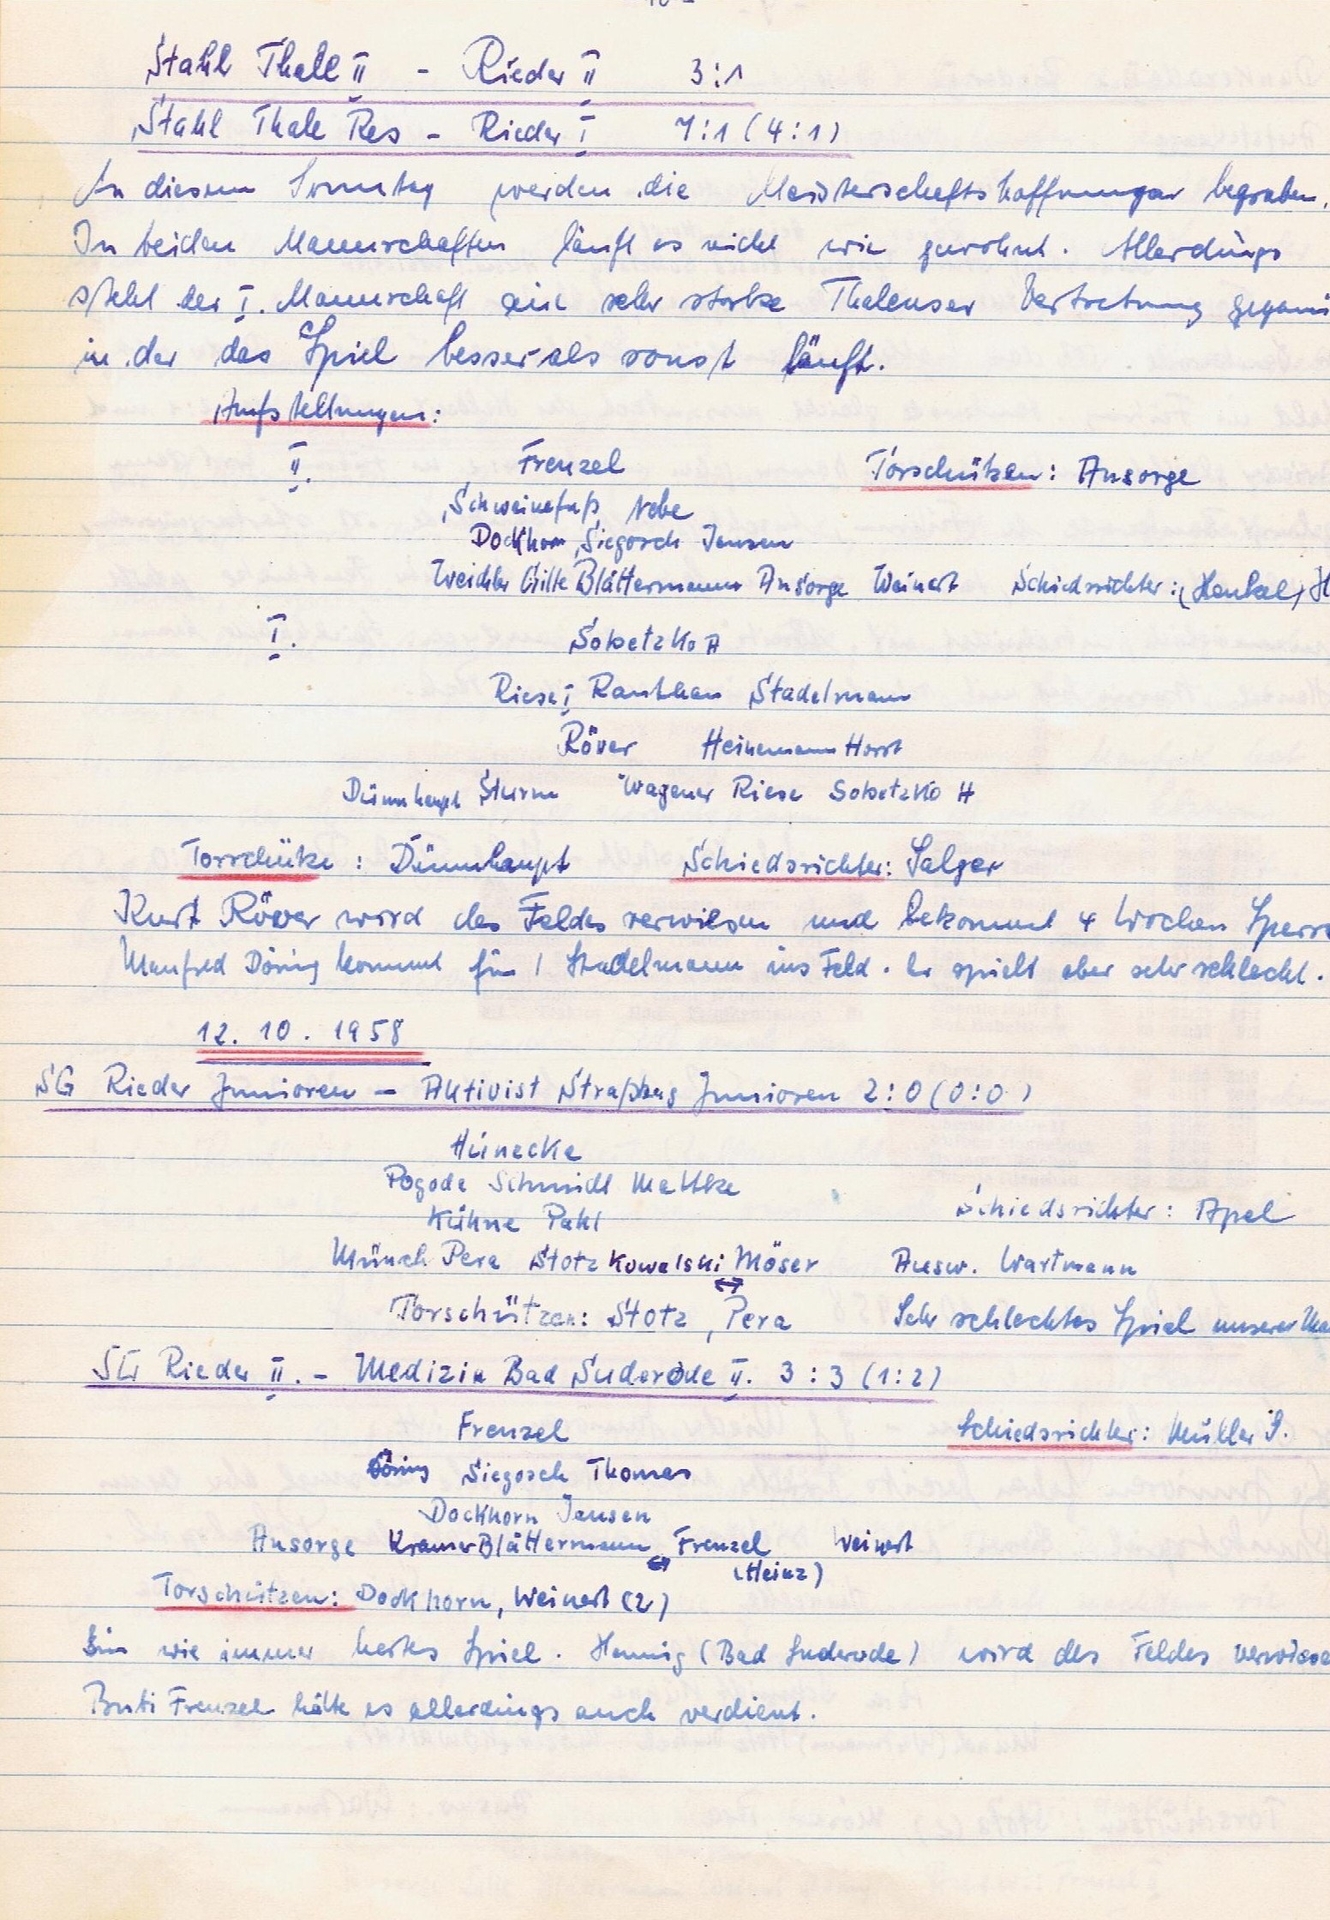 Stahl Thale II - Rieder II 3:1
Stahl Thale Res - Rieder I 7:1 (4:1)
An diesem Sonntag werden die Meisterschaftshoffnungen begraben.
In beiden Mannschaften läuft es nicht wie gewohnt. Allerdings
steht der I. Mannschaft eine sehr starke Thalenser Vertretung gegenü
in der das Spiel besser als sonst läuft.
Aufstellungen:
II. Frenzel Torschützen: Ansorge
Schweinefuß Nebe
Dockhorn, Siegosch Jensen
Weichler Gille Blättermann Ansorge Weinert Schiedsrichter: (Henkel, H
I. Sobetzko A
Riese I Rauthan Stadelmann
Röver Heinemann Horst
Dünnhaupt Sturm Wagener Riese Sobetzko H
Torschütze: Dünnhaupt Schiedsrichter: Salger
Kurt Röver wird des Feldes verwiesen und bekommt 4 Wochen Sperre
Manfred Döring kommt für Stadelmann ins Feld. Er spielt aber sehr schlecht.
12. 10. 1958
SG Rieder Junioren - Aktivist Straßberg Junioren 2:0 (0:0)
Hünecke
Pogoda Schmidt Mattke
Kühne Pahl Schiedsrichter: Apel
Münch Pera Stotz Kowalski Möser Ausw. Wartmann
↔
Torschützen: Stotz, Pera Sehr schlechtes Spiel unserer Ma
SG Rieder II. - Medizin Bad Suderode II. 3:3 (1:2)
Frenzel Schiedsrichter: Müller S.
Döring Siegosch Thomas
Dockhorn Jensen
Ansorge Kramer Blättermann ↔ Frenzel Weinert
(Heinz)
Torschützen: Dockhorn, Weinert (2)
Ein wie immer hartes Spiel. Hennig (Bad Suderode) wird des Feldes verwiese
Buti Frenzel hätte es allerdings auch verdient.